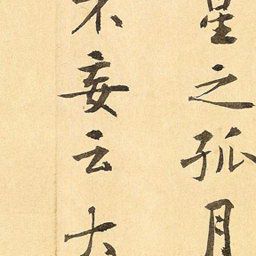 星之孤月
不妄云大